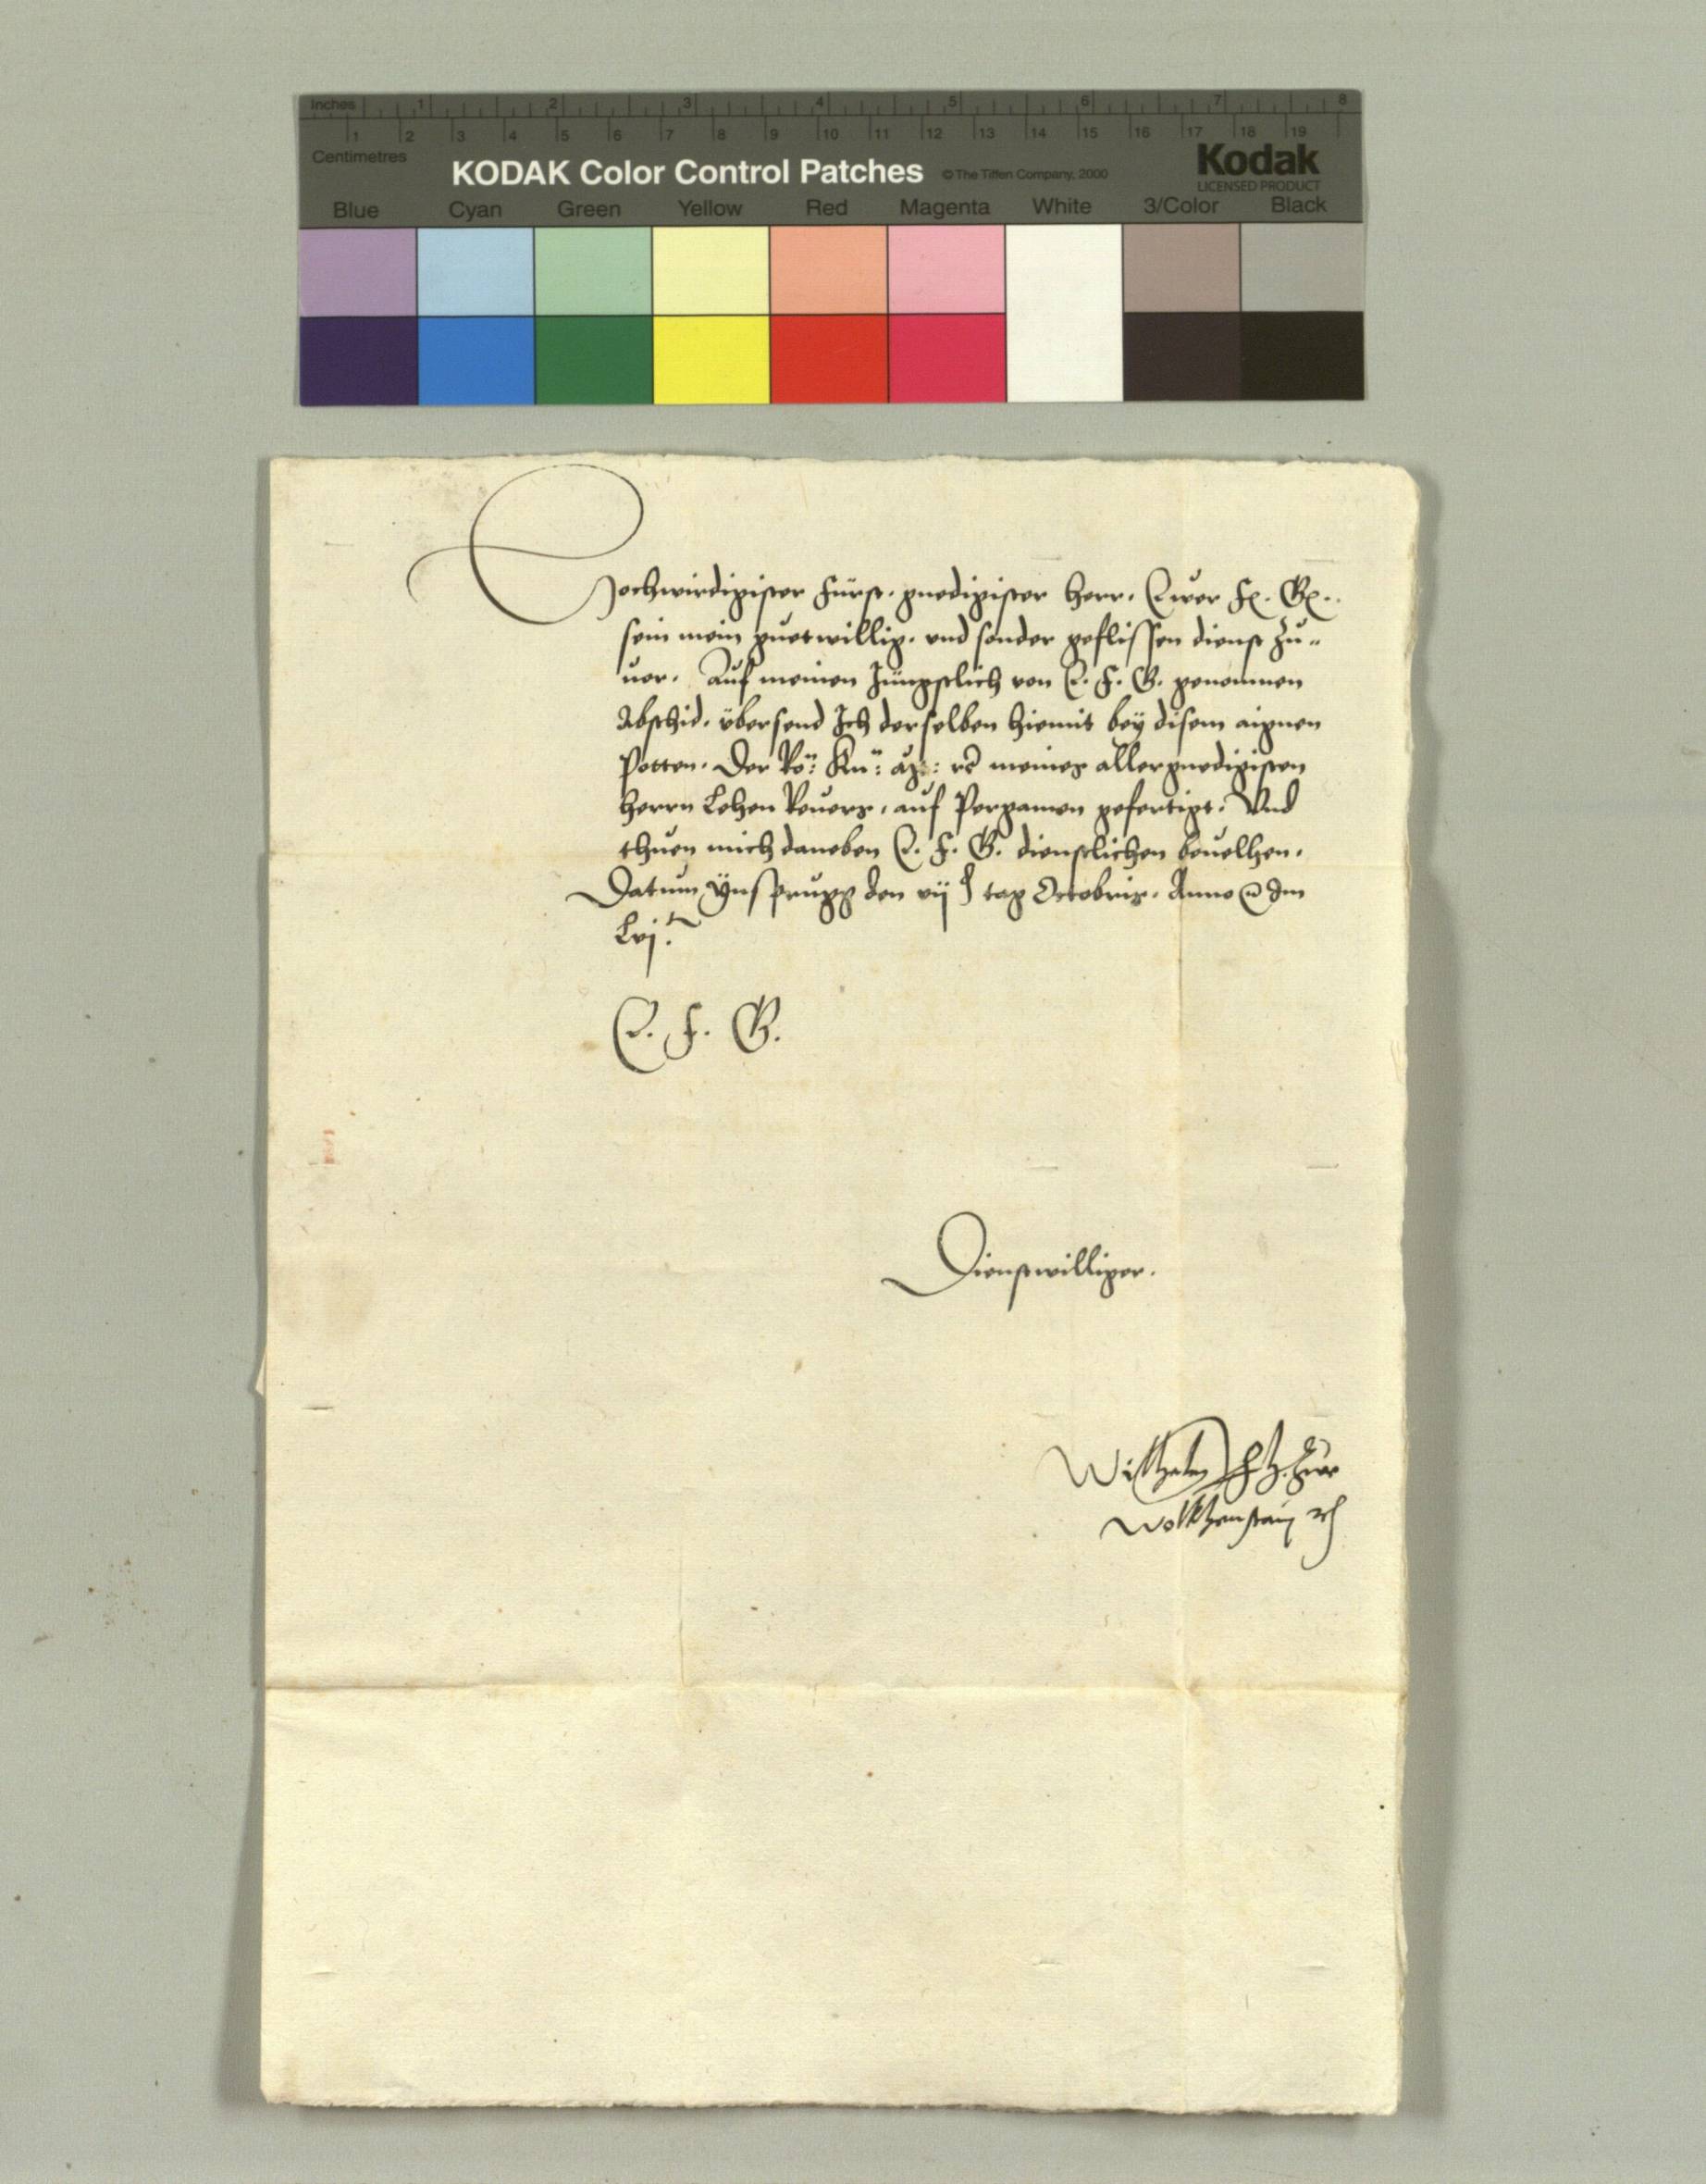 Inches 1 2 3 4 5 6 7 8
1 2 3 4 5 6 7 8 9 10 11 12 13 14 15 16 17 18 19
Centimetres
KODAK Color Control Patches © The Tiffen Company, 2000 Kodak
LICENSED PRODUCT
Blue Cyan Green Yellow Red Magenta White 3/Color Black
Hochwirdigister Fürst, gnedigister Herr, Ewer Fr. Gn.
sein mein guetwillig, vnd sonder geflissen dienst zu=
uor. Auf meinen Jüngstlich von E. F. G. genomnen
Abschid, übersend Ich derselben hiemit bey disem aignen
Potten, Der Rö: Kü: rc meines allergnedigisten
herrn Lehen Reuers, auf Pergamen gefertigt, Vnd
thuen mich daneben E. F. G. dienstlichen beuelhen.
Datum Ynsprugg den vij tag Octobris, Anno im
Lvj.
E. F. G.
Dienstwilliger.
Wilhelm zur
Wolkhenstain